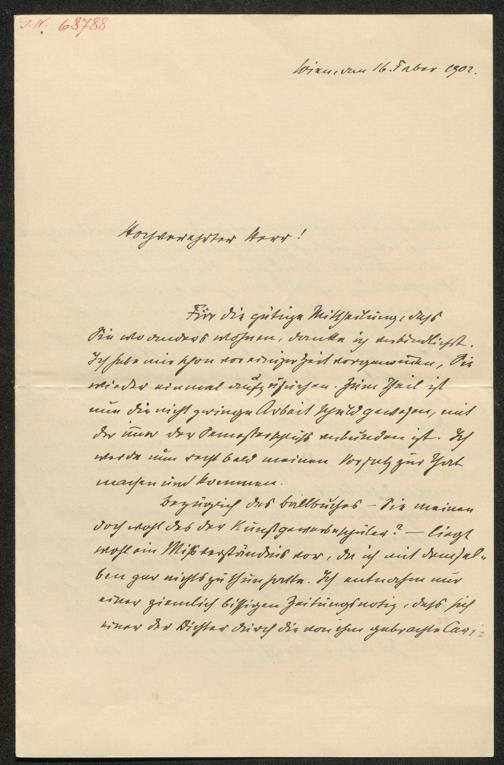 J. N. 68788
Wien, den 16. Feber 1902.
Hochverehrter Herr!
Für die gütige Mittheilung, daß
Sie woanders wohnen, danke ich verbindlichst.
Ich habe mir schon vor einiger Zeit vorgenommen, Sie
wieder einmal aufzusuchen. Zum Theil ist
nun die nicht geringe Arbeit schuld gewesen, mit
der immer der Semesterschluß verbunden ist. Ich
werde nun recht bald meinen Vorsatz zur That
machen und kommen.
Bezüglich des Ballbuches – Sie meinen
doch wohl das der Kunstgewerbeschüler? – liegt
wohl ein Mißverständnis vor, da ich mit demsel-
ben gar nichts zu thun hatte. Ich entnahm nur
einer ziemlich bissigen Zeitungsnotiz, daß sich
einer der Dichter durch die von ihm gebrachte Cari-